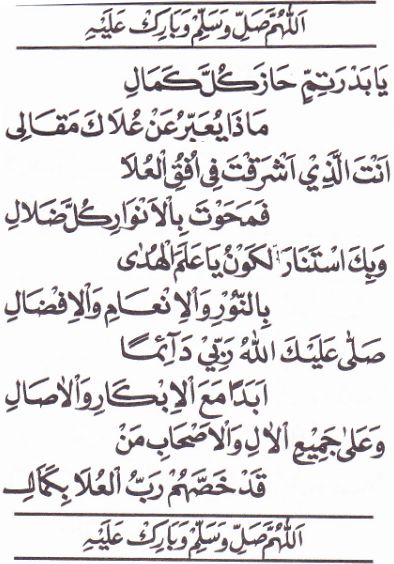 اَللّٰهُمَّ صَلِّ وَسَلِّمْ وَبَارِكْ عَلَيْهِ
يَا بَدْرَتِمٍّ حَازَ كُلَّ كَمَالِ
مَاذَا يُعَبِّرُ عَنْ عُلَاكَ مَقَالِى
اَنْتَ الَّذِيْ اَشْرَقْتَ فِى اُفُقِ الْعُلَا
فَمَحَوْتَ بِالْاَنْوَارِ كُلَّ ضَلَالِ
وَبِكَ اسْتَنَارَ الْكَوْنُ يَا عَلَمَ الْهُدٰى
بِالنُّوْرِ وَالْاِنْعَامِ وَالْاِفْضَالِ
صَلّٰى عَلَيْكَ اللهُ رَبِّيْ دَآئِمًا
اَبَدًا مَعَ الْاِبْكَارِ وَالْاٰصَالِ
وَعَلٰى جَمِيْعِ الْاٰلِ وَالْاَصْحَابِ مَنْ
قَدْ خَصَّهُمْ رَبُّ الْعُلَا بِكَمَالِ
اَللّٰهُمَّ صَلِّ وَسَلِّمْ وَبَارِكْ عَلَيْهِ